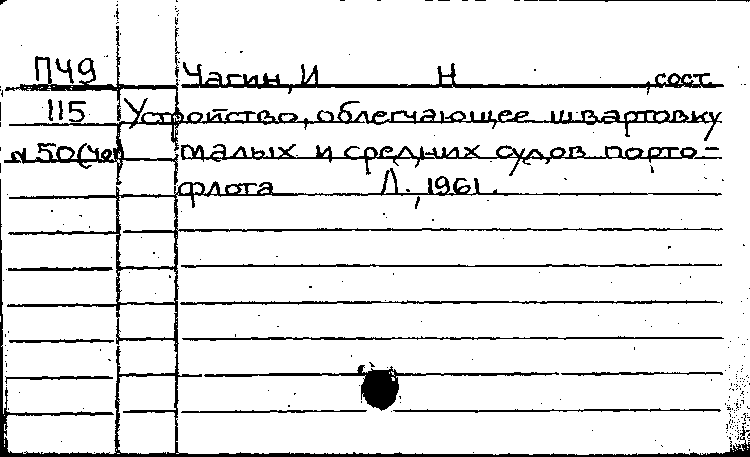 ПЧ9 Чагин, И Н , сост.
115 Устройство, облегчающее швартовку
№50(Чог) малых и средних судов порто-
флота Л., 1961.